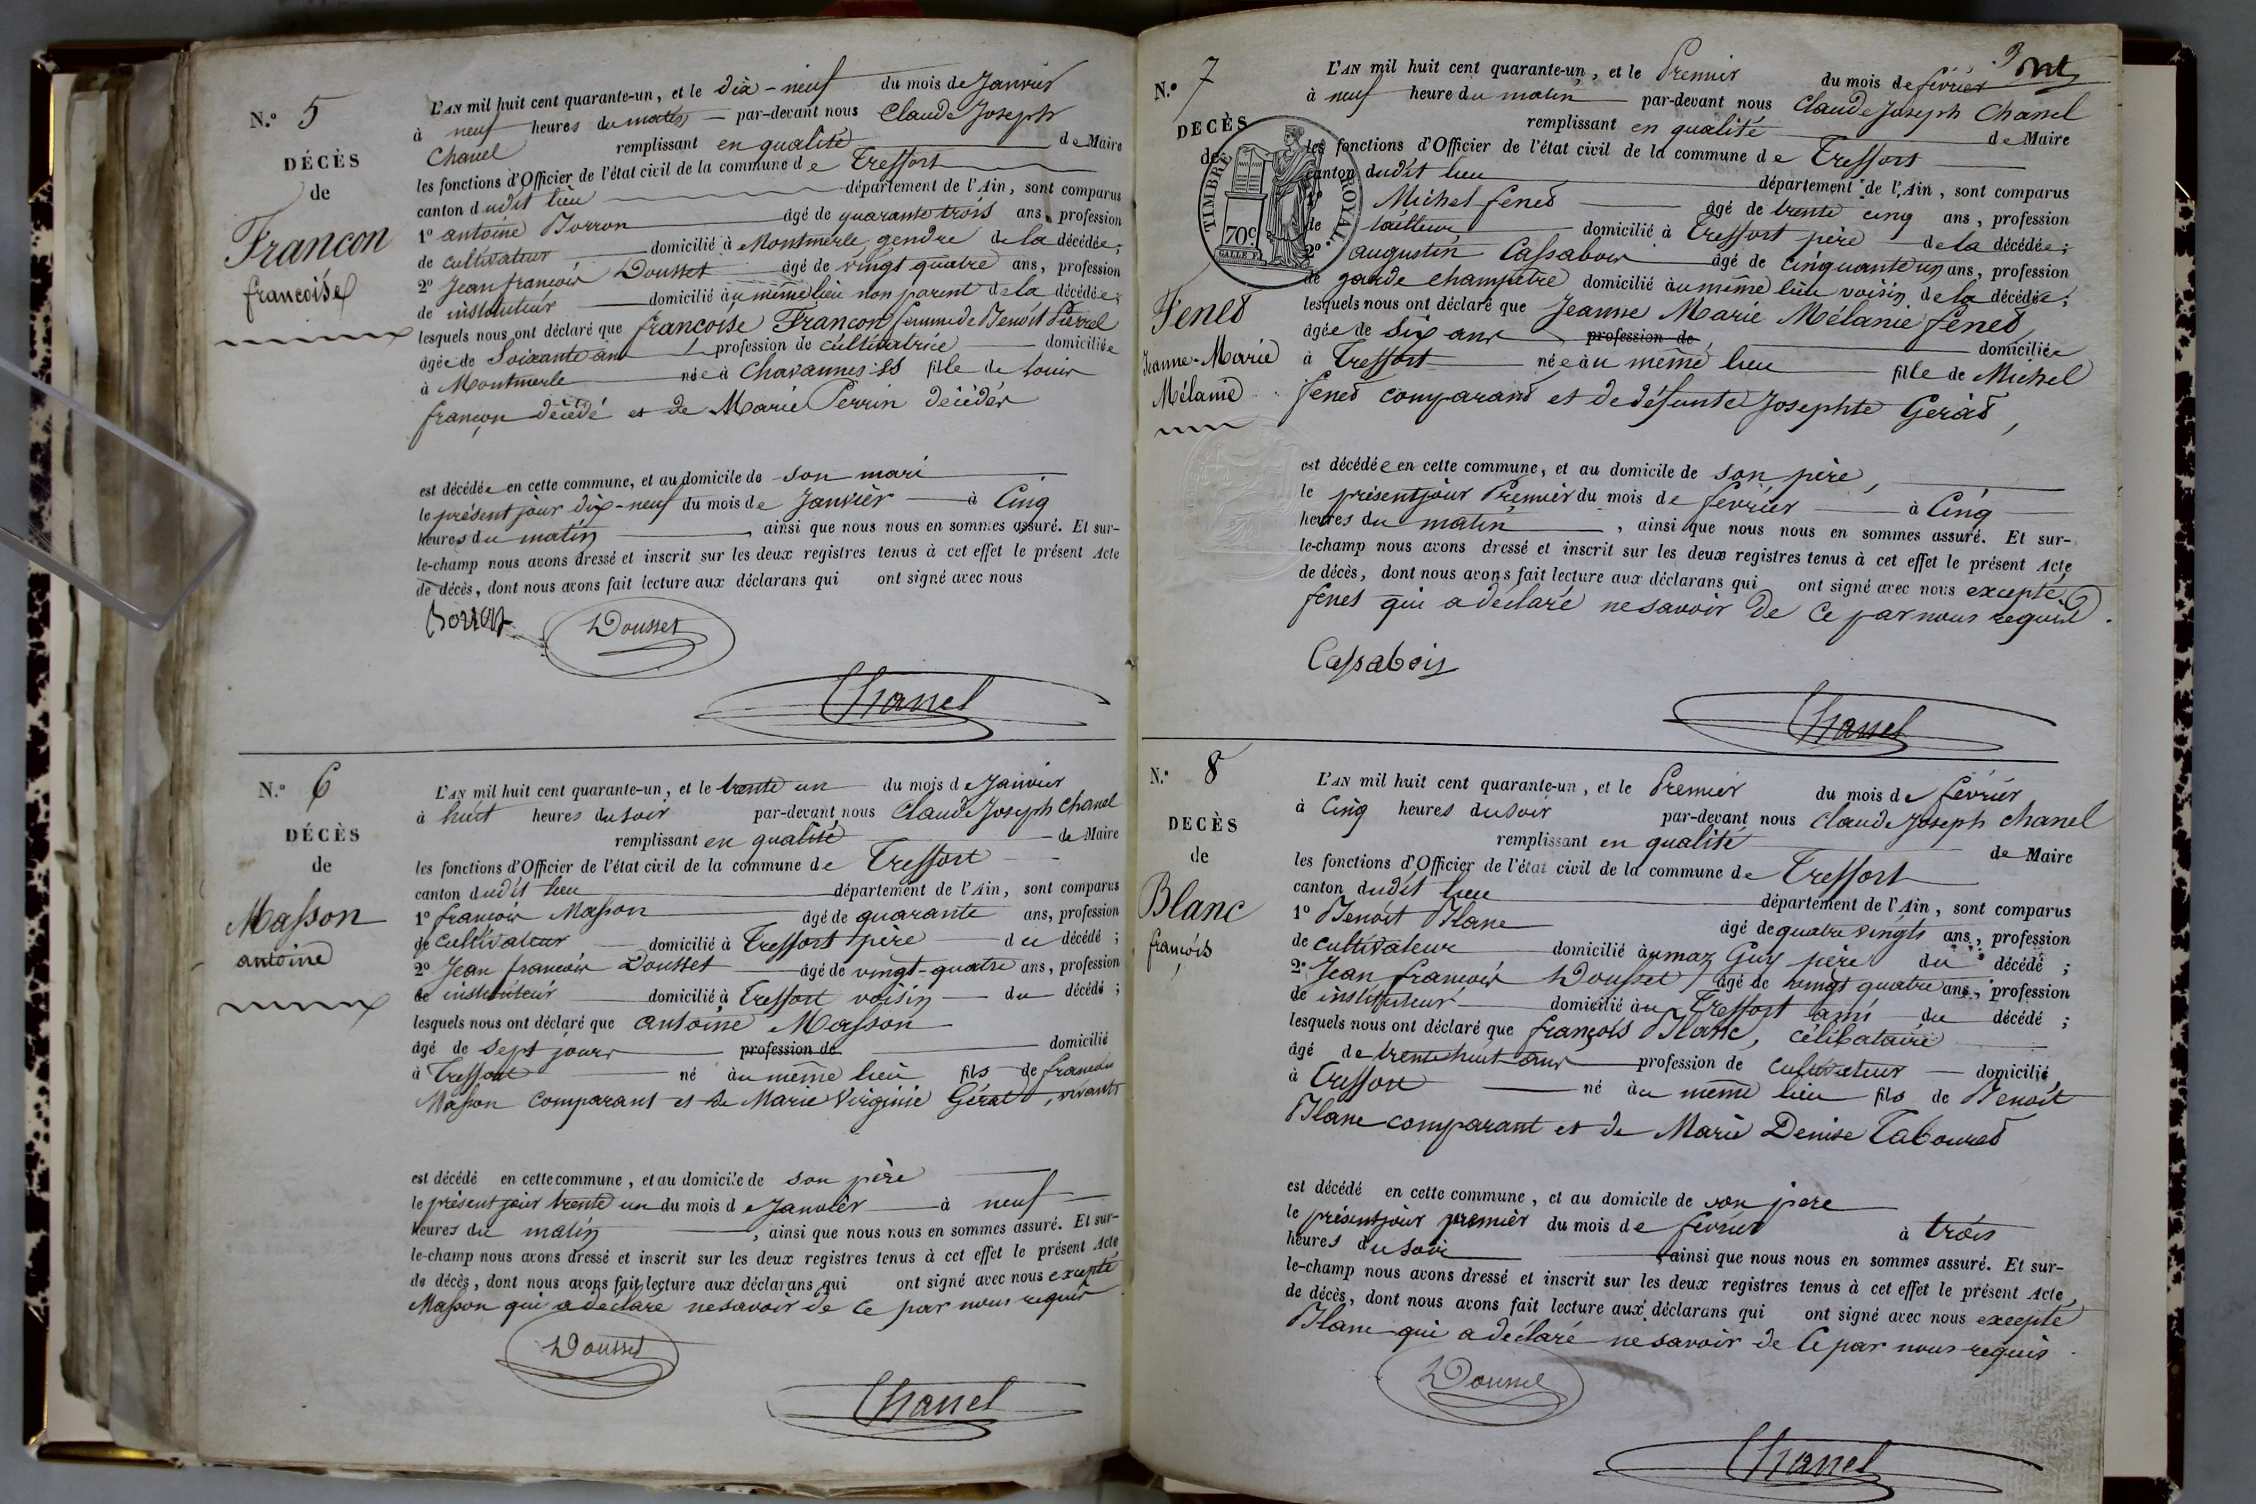 N.º 5
DÉCÈS
de
Françon
françoise
L'AN mil huit cent quarante-un, et le dix-neuf du mois de Janvier
à neuf heures du matin par-devant nous Claude Joseph
Chanel remplissant en qualité de Maire
les fonctions d'Officier de l'état civil de la commune de Treffort
canton dudit lieu département de l'Ain, sont comparus
1º antoine Borron âgé de quarante trois ans, profession
de cultivateur domicilié à Montmerle, gendre de la décédée;
2º Jean françois Dousset âgé de vingt quatre ans, profession
de instituteur domicilié au même lieu non parent de la décédée;
lesquels nous ont déclaré que françoise Françon femme de Benoît
âgée de soixante ans profession de cultivatrice domiciliée
à Montmerle née à Chavannes fille de Louis
françon décédé et de Marie Perrin décédés
est décédée en cette commune, et au domicile de son mari
le présent jour dix-neuf du mois de Janvier à Cinq
heures du matin, ainsi que nous nous en sommes assuré. Et sur-
le-champ nous avons dressé et inscrit sur les deux registres tenus à cet effet le présent Acte
de décès, dont nous avons fait lecture aux déclarans qui ont signé avec nous
Borron Dousset
Chanel
N.º 6
DÉCÈS
de
Masson
antoine
L'AN mil huit cent quarante-un, et le trente un du mois de Janvier
à huit heures du soir par-devant nous Claude Joseph Chanel
remplissant en qualité de Maire
les fonctions d'Officier de l'état civil de la commune de Treffort
canton dudit lieu département de l'Ain, sont comparus
1º françois Masson âgé de quarante ans, profession
de cultivateur domicilié à Treffort père du décédé;
2º Jean françois Dousset âgé de vingt-quatre ans, profession
de instituteur domicilié à Treffort voisin du décédé;
lesquels nous ont déclaré que antoine Masson
âgé de sept jours profession de domicilié
à Treffort né au même lieu fils de françois
Masson comparant et de Marie Virginie Gérat, vivants
est décédé en cette commune, et au domicile de son père
le présent jour trente un du mois de Janvier à neuf
heures du matin, ainsi que nous nous en sommes assuré. Et sur-
le-champ nous avons dressé et inscrit sur les deux registres tenus à cet effet le présent Acte
de décès, dont nous avons fait lecture aux déclarans qui ont signé avec nous excepté
Masson qui a déclaré ne savoir de ce par nous requis
Dousset
Chanel
3
N.º 7
DECÈS
de
TIMBRE ROYAL.
70 c
Fenet
Jeanne-Marie
Mélanie
L'AN mil huit cent quarante-un, et le Premier du mois de février
à neuf heure du matin par-devant nous Claude Joseph Chanel
remplissant en qualité de Maire
les fonctions d'Officier de l'état civil de la commune de Treffort
canton dudit lieu département de l'Ain, sont comparus
1º Michel fenet âgé de trente cinq ans, profession
de tailleur domicilié à Treffort père de la décédée;
2º augustin Cassabois âgé de cinquante un ans, profession
de garde champêtre domicilié au même lieu voisin de la décédée;
lesquels nous ont déclaré que Jeanne Marie Mélanie fenet
âgée de six ans profession de domiciliée
à Treffort née au même lieu fille de Michel
fenet comparant et de défunte Josephte Gérat,
est décédée en cette commune, et au domicile de son père,
le présent jour Premier du mois de février à Cinq
heures du matin, ainsi que nous nous en sommes assuré. Et sur-
le-champ nous avons dressé et inscrit sur les deux registres tenus à cet effet le présent Acte
de décès, dont nous avons fait lecture aux déclarans qui ont signé avec nous excepté
fenet qui a déclaré ne savoir de ce par nous requis.
Cassabois
Chanel
N.º 8
DECÈS
de
Blanc
françois
L'AN mil huit cent quarante-un, et le Premier du mois de février
à Cinq heures du soir par-devant nous Claude Joseph Chanel
remplissant en qualité de Maire
les fonctions d'Officier de l'état civil de la commune de Treffort
canton dudit lieu département de l'Ain, sont comparus
1º Benoît Blanc âgé de quatre vingts ans, profession
de cultivateur domicilié au maz Guy père du décédé;
2º Jean françois Dousset âgé de vingt quatre ans, profession
de instituteur domicilié au Treffort ami du décédé;
lesquels nous ont déclaré que françois Blanc, célibataire
âgé de trente huit ans profession de cultivateur domicilié
à Treffort né au même lieu fils de Benoît
Blanc comparant et de Marie Denise Tabouret
est décédé en cette commune, et au domicile de son père
le présent jour premier du mois de février à trois
heures du soir ainsi que nous nous en sommes assuré. Et sur-
le-champ nous avons dressé et inscrit sur les deux registres tenus à cet effet le présent Acte
de décès, dont nous avons fait lecture aux déclarans qui ont signé avec nous excepté
Blanc qui a déclaré ne savoir de ce par nous requis.
Dousset
Chanel